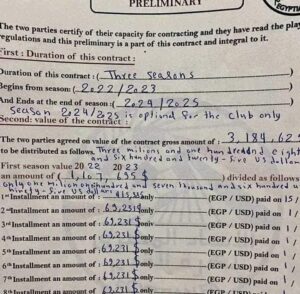 PRELIMINARY
EGYPTI
The two parties certify of their capacity for contracting and they have read the play
regulations and this preliminary is a part of this contract and integral to it.
First : Duration of this contract :
Duration of this contract : ( Three seasons )
Begins from season : ( 2022 / 2023 )
And Ends at the end of season : ( 2024 / 2025 )
Season 2024/2025 is optional for the club only
Second: value of the contract :
The two parties agreed on value of the contract gross amount of : 3,184,625
to be distributed as follows. Three millions and one hundred and eight
and six hundred and twenty-five US dollar
First season value 20 22 20 23
an amount of ( 1,107,695 $ ) divided as follows
only one million one hundred and seven thousand and six hundred a
ninety - five US dollar
1st Installment an amount of : only (EGP / USD) paid on 15 /
2nd Installment an amount of : 69,231 $ only (EGP / USD) paid on 1 /
3rd Installment an amount of : 69,231 $ only (EGP / USD) paid on /
4th Installment an amount of : 69,231 $ only (EGP / USD) paid on /
5th Installment an amount of : 69,231 $ only (EGP / USD) paid on /
6th Installment an amount of : 69,231 $ only (EGP / USD) paid on 1 /
7th Installment an amount of : 69,231 $ only (EGP / USD) paid on /
8th Installment an amount of : 69,231 $ only (EGP / USD) paid